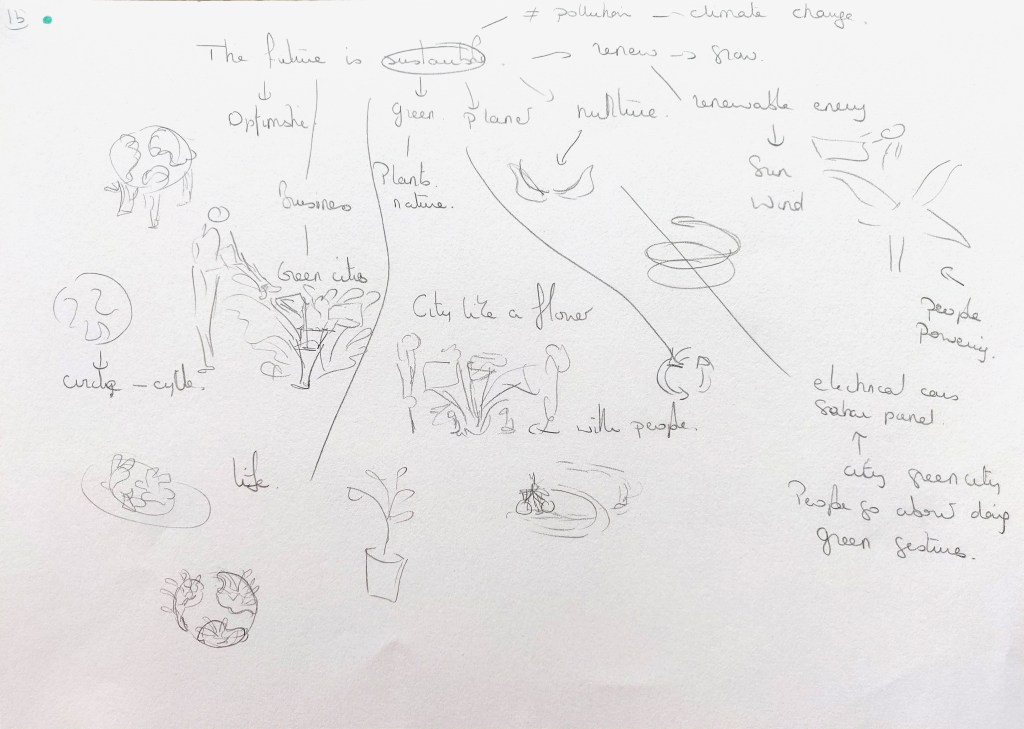 15
≠ pollution – climate change.
The future is sustainble. → renew → grow.
Optimistic
green planet nurture. renewable energy
Plants.
nature.
Sun
Wind
Business
Green cities
City like a flower
People
powering.
circle – cycle.
electrical cars
Solar panel.
with people.
life.
city green city
People go about doing
green gestures.